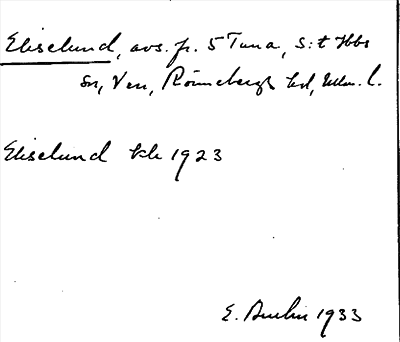 Eliselund, avs. fr. 5 Tuna, S:t Ibbs
sn, Ven, Rönnebergs hd, Mlm. l.
Eliselund kk 1923
E. 1933